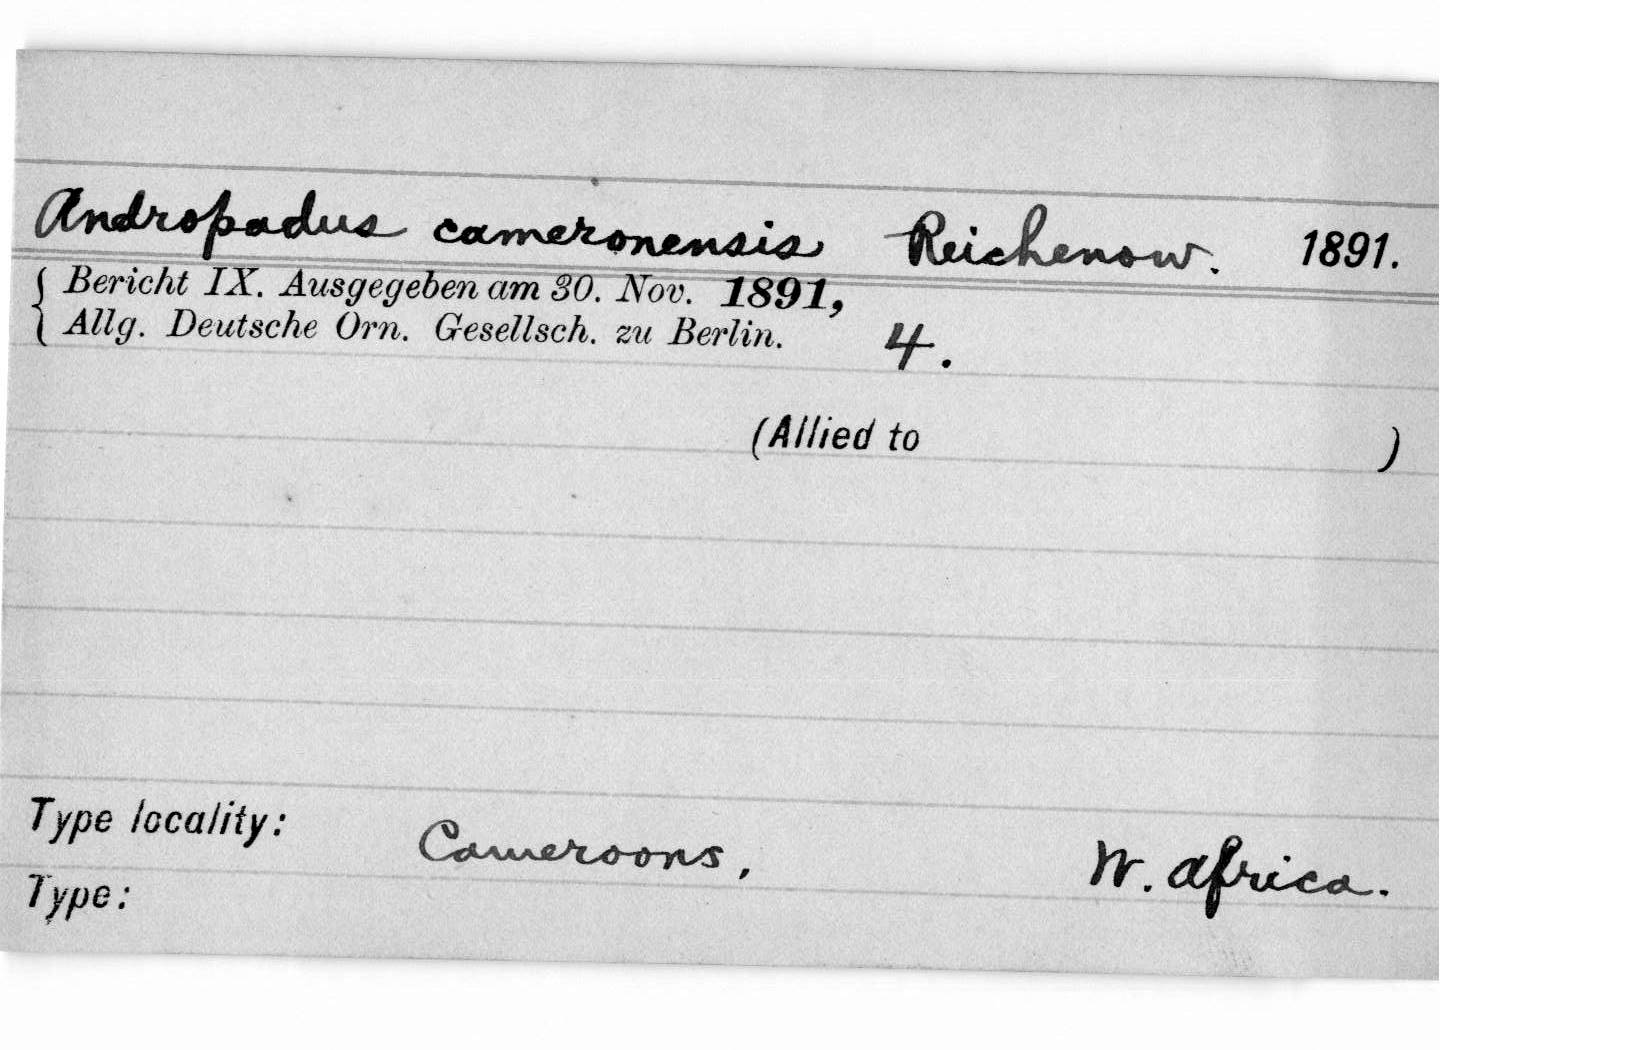 Andropadus cameronensis Reichenow. 1891.
{ Bericht IX. Ausgegeben am 30. Nov. 1891,
{ Allg. Deutsche Orn. Gesellsch. zu Berlin. 4.
(Allied to )
Type locality: Cameroons, W. Africa.
Type: